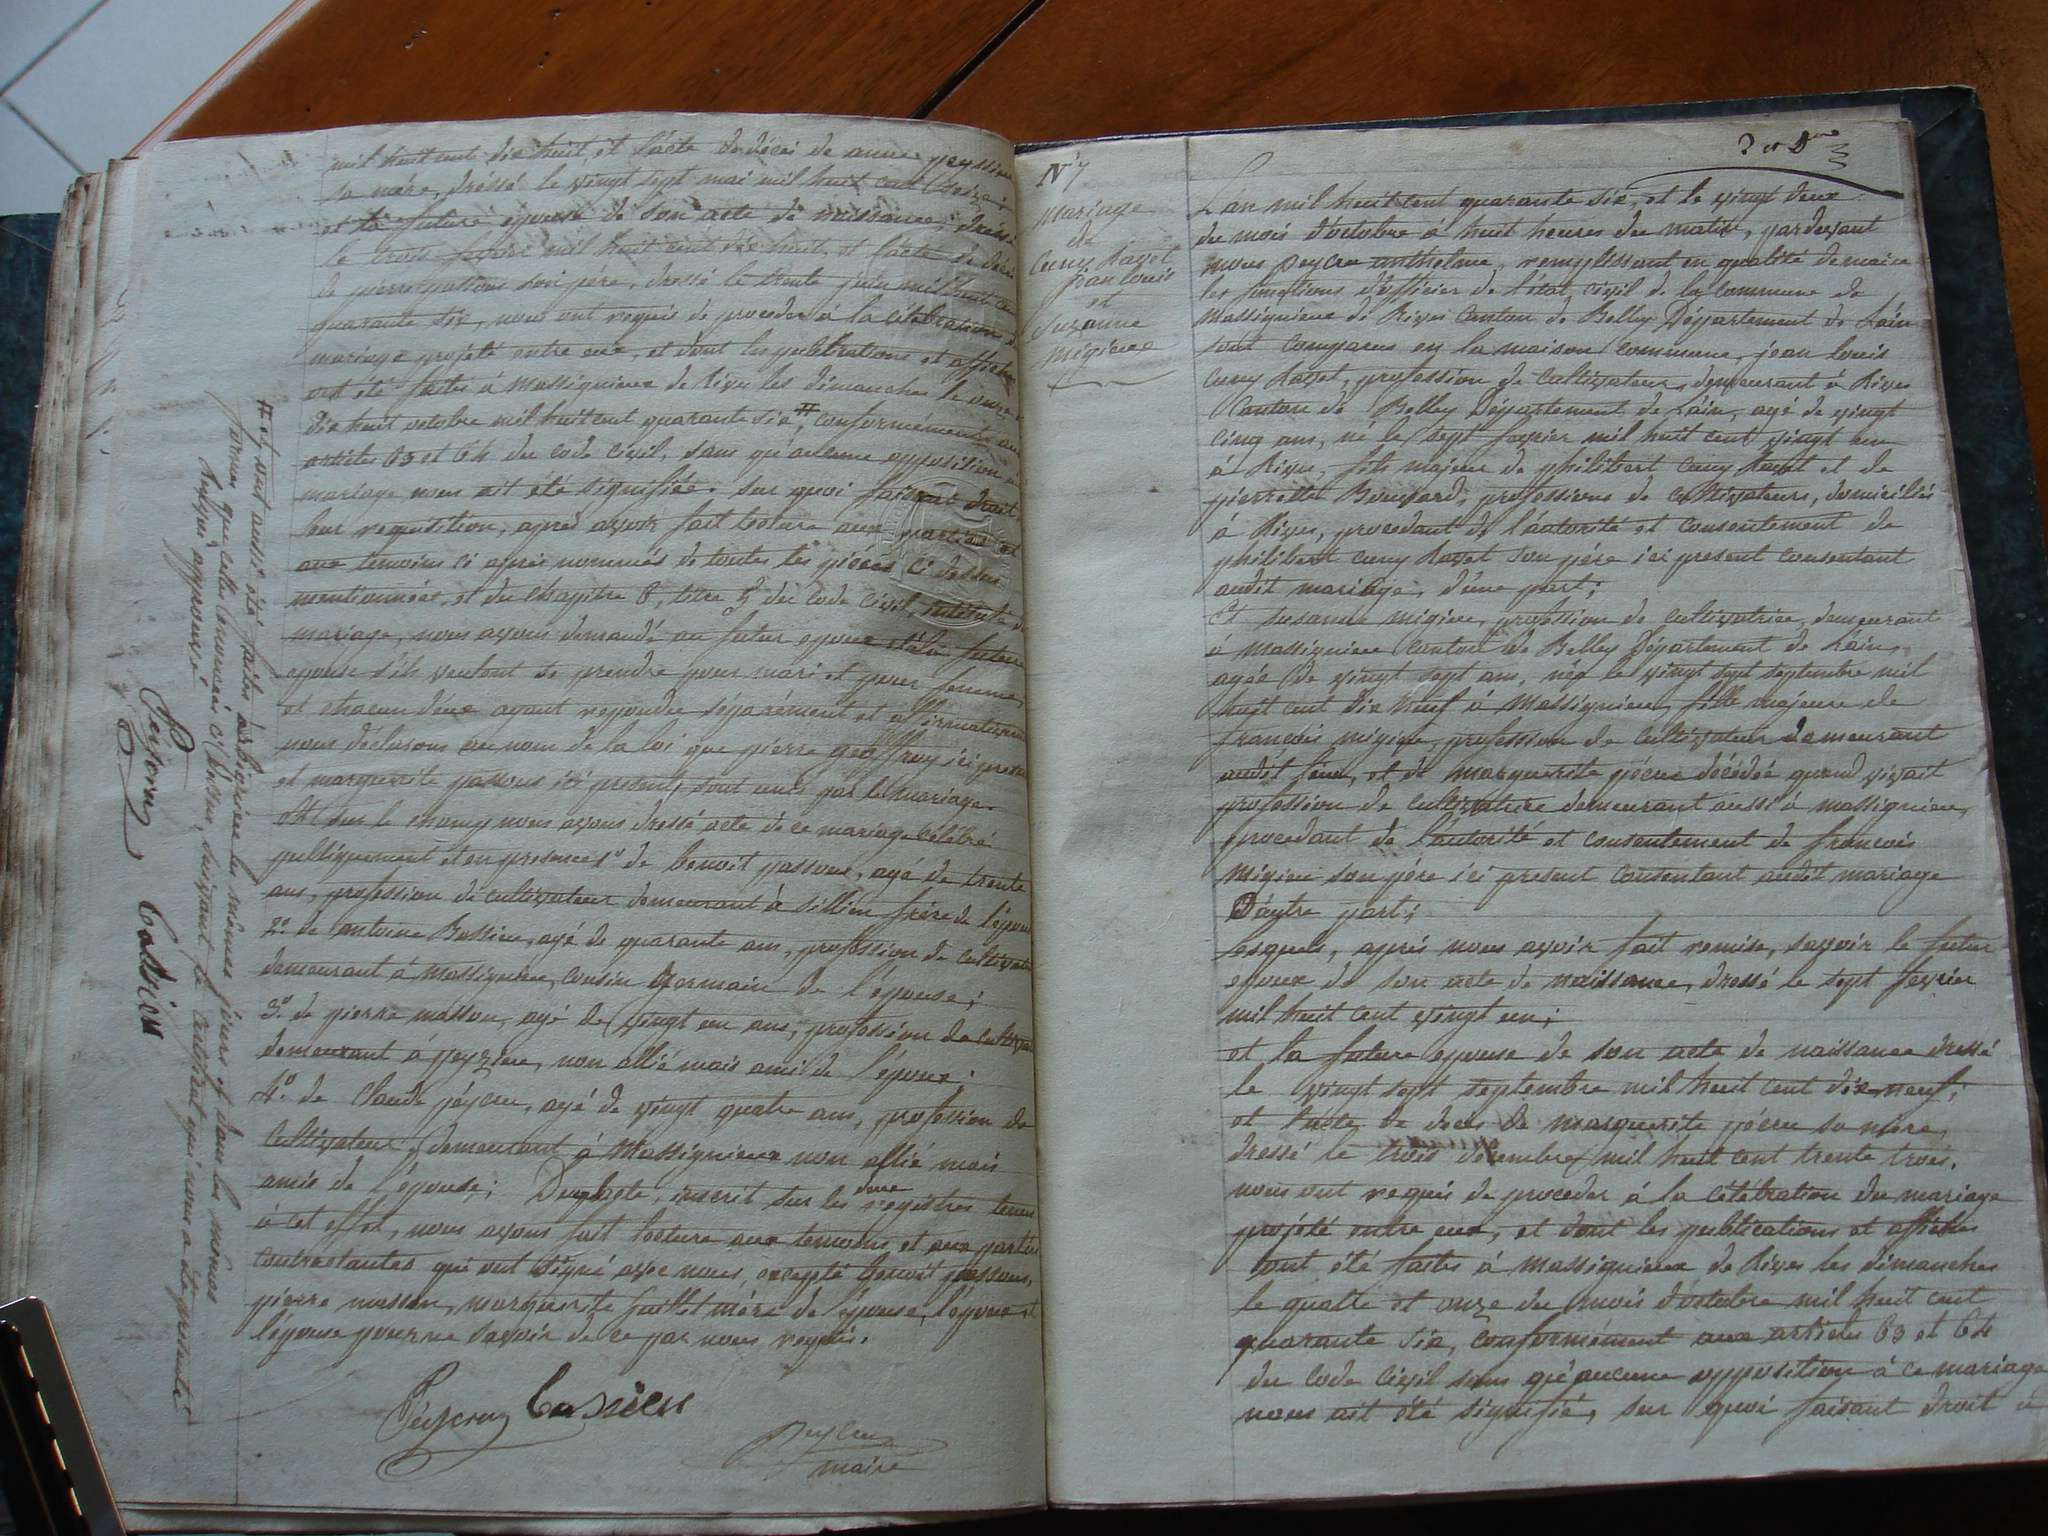 mil huit cent dix huit, et l'acte de décès de anne
sa mère, dréssé le vingt sept mai mil huit cent
et la future epouse de son acte de naissance, dressé
le trois fevrier mil huit cent dix huit, et l'acte de décès
de pierre passons son pére, dressé le trente juin mil huit cent
quarante six, nous ont requis de proceder à la célébration du
mariage projeté entre eux, et dont les publications et affiches
ont été faites à Massignieux de Rives les dimanches le onze et
dix huit octobre mil huit cent quarante six #, conformément aux
articles 63 et 64 du code civil, sans qu'aucune opposition au
mariage nous ait été signifiée. Sur quoi faisant droit à
leur requisition, après avoir fait lecture aux parties et
aux temoins ci après nommés de toutes les piéces ci dessus
mentionnées, et du chapitre 6, titre 5 du Code civil, intitulé du
mariage, nous avons demandé au futur epoux et à la future
epouse s'ils veulent se prendre pour mari et pour femme,
et chacun d'eux ayant repondu separément et affirmativement
nous déclarons au nom de la loi que pierre geoffroy ici présent
et marguerite passons ici present, sont unis par le mariage.
Et sur le champ nous avons dressé acte de ce mariage célébré
publiquement et en presence 1º de benoit passons, agé de trente
ans, profession de cultivateur demeurant à Sillien frère de l'épouse
2º. de antoine Bossieu, agé de quarante ans, profession de cultivateur
demeurant à Massignieu, cousin germain de l'épouse;
3º. de pierre masson, agé de vingt un ans, profession de cultivateur
demeurant à peyzieu, non allié mais ami de l'époux;
4º. de Claude péycru, agé de vingt quatre ans, profession de
cultivateur, demeurant à Massignieux non allié mais
amis de l'épouse; Duquel acte, inscrit sur les deux registres tenus
à cet effet, nous avons fait lecture aux temoins et aux parties
contractantes qui ont signé avec nous, excepté benoit passons,
pierre masson, marguerite juillet mère de l'épouse, l'époux et
l'épouse pour ne savoir de ce par nous requis.
Peÿcruz Cassien
Peycru
maire
# et ont aussi été faites à Virignien les mêmes jours et dans les mêmes
formes que celles énoncées ci dessus, suivant le certificat qui nous a été présenté
Renvoi approuvé
Peycruz Cassien
Nº 7
Mariage
de
Cuny Ravet
Jean Louis
et
Suzanne
Migieux
L'an mil huit cent quarante six, et le vingt deux
du mois d'octobre à huit heures du matin, pardevant
nous peycru anthelme, remplissant en qualité de maire
les fonctions d'officier de l'état civil de la commune de
Massignieux de Rives Canton de Belley Département de l'ain
sont comparus en la maison commune, jean louis
cuny Ravet, profession de cultivateur, demeurant à Rives
Canton de Belley Département de l'ain, agé de vingt
cinq ans, né le sept fevrier mil huit cent vingt un
à Rives, fils majeur de philibert cuny Ravet et de
pierrette Bouvard, professions de cultivateurs, domiciliés
à Rives, procedant de l'autorité et consentement de
philibert cuny Ravet son pére ici present consentant
audit mariage, d'une part;
Et susanne migieu, profession de cultivatrice, demeurant
à Massignieu Canton de Belley Département de l'ain,
agée de vingt sept ans, née le vingt sept septembre mil
huit cent dix neuf à Massignieu, fille majeure de
francois migieu, profession de cultivateur demeurant
audit lieu, et de marguerite pécru décédée quand vivait
profession de cultivature demeurant aussi à massignieu,
procedant de l'autorité et consentement de francois
Migieu son pére ici present consentant audit mariage
D'autre part;
Lesquels, après nous avoir fait remise, savoir le futur
epoux de son acte de naissance, dressé le sept fevrier
mil huit cent vingt un;
et la future epouse de son acte de naissance dressé
le vingt sept septembre mil huit cent dix neuf;
et l'acte de deces de marguerite pécru sa mére,
dressé le trois décembre mil huit cent trente trois.
nous ont requis de proceder à la célébration du mariage
projété entre eux, et dont les publications et affiches
ont été faites à Massignieux de Rives les dimanches
le quatre et onze du mois d'octobre mil huit cent
quarante six, conformément aux articles 63 et 64
du Code Civil sans qu'aucune opposition à ce mariage
nous ait été signifié, sur quoi faisant droit à